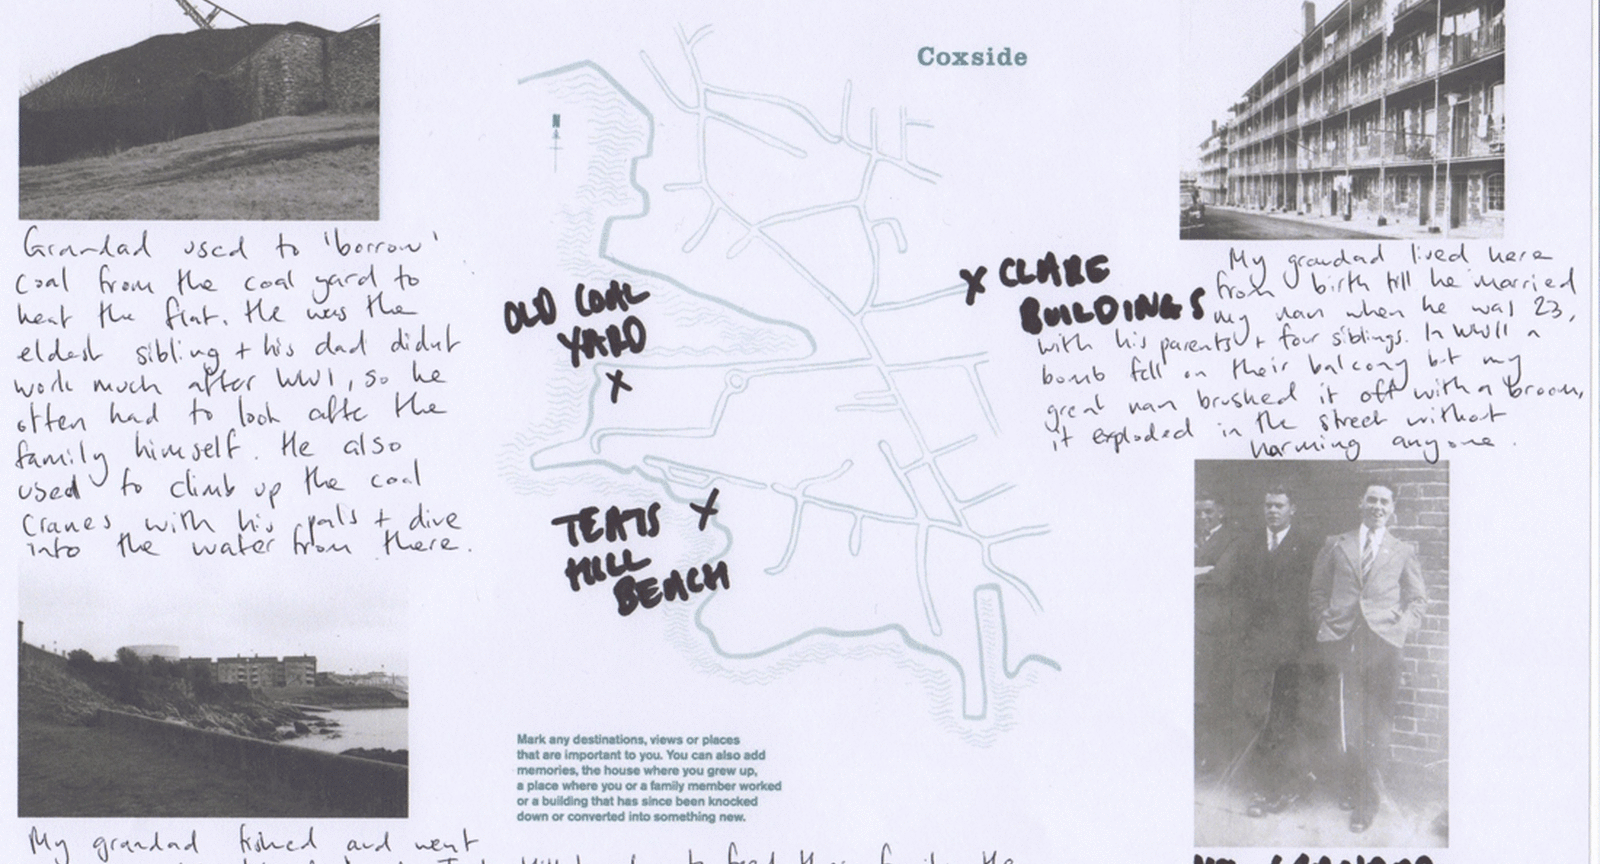 Coxside
N
Grandad used to 'borrow'
coal from the coal yard to
heat the flat. He was the
eldest sibling + his dad didnt
work much after WWI, so he
often had to look afte the
family himself. He also
used to climb up the coal
cranes with his pals + dive
into the water from there.
My grandad fished and went
OLD COAL
YARD
X
TEATS X
HILL
BEACH
Mark any destinations, views or places
that are important to you. You can also add
memories, the house where you grew up,
a place where you or a family member worked
or a building that has since been knocked
down or converted into something new.
X CLARE
BUILDINGS
My grandad lived here
from birth till he married
my nan when he was 23,
with his parents + four siblings. In WWII a
bomb fell on their balcony but my
great nan brushed it off with a broom,
it exploded in the street without
harming anyone.